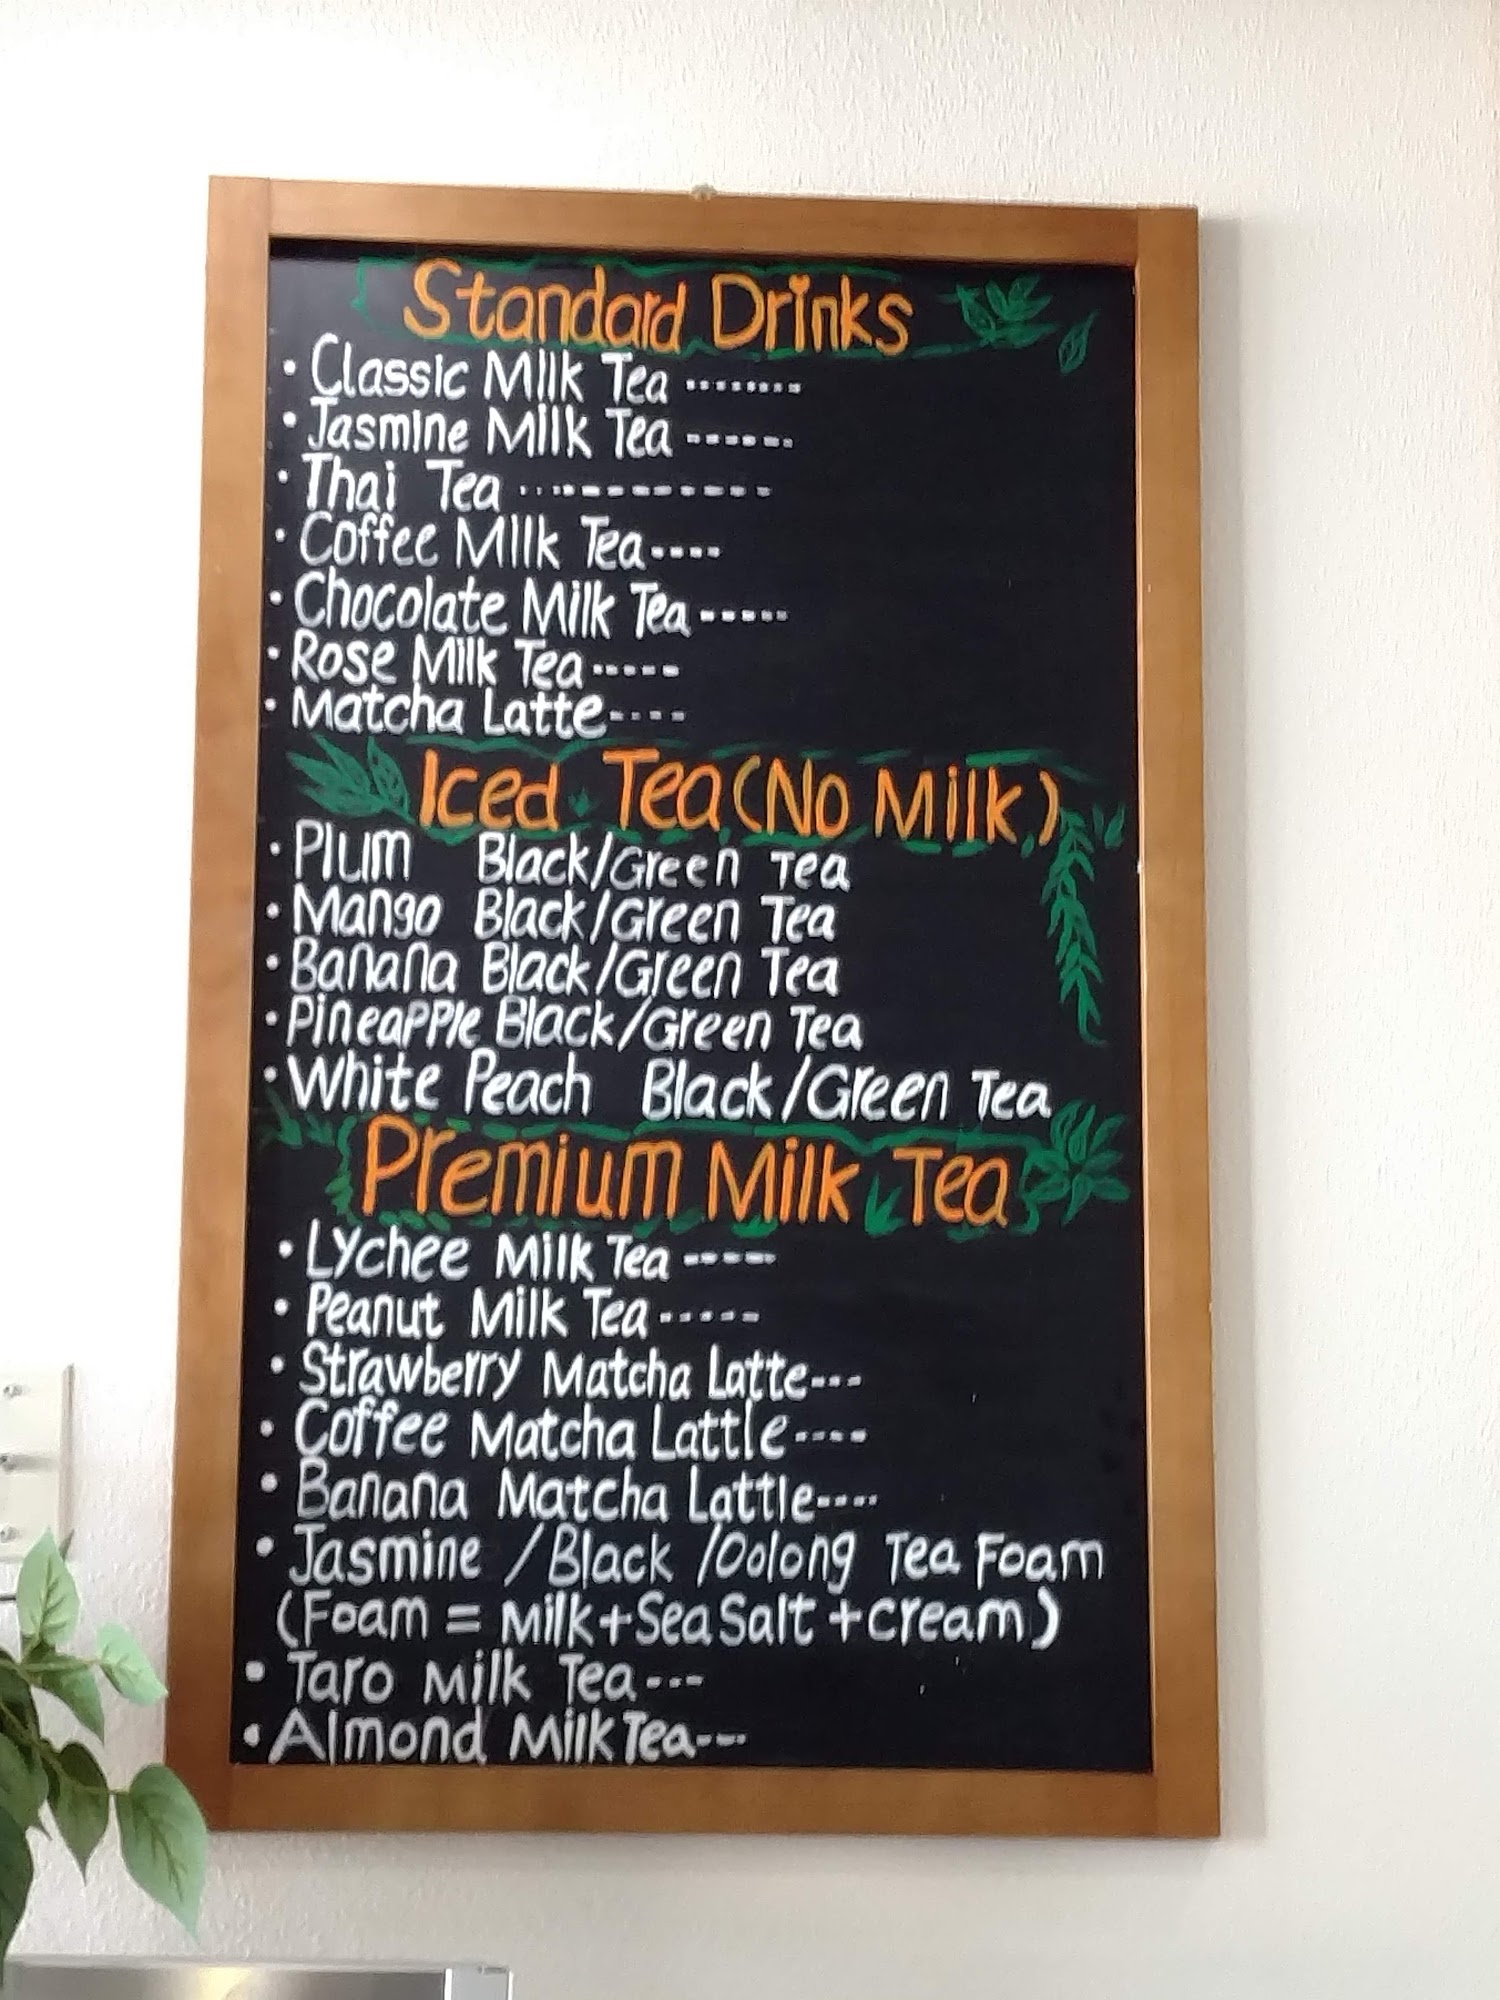 Standard Drinks
• Classic Milk Tea --------
• Jasmine Milk Tea ------
• Thai Tea ------------
• Coffee Milk Tea----
• Chocolate Milk Tea-----
• Rose Milk Tea-----
• Matcha Latte----
Iced Tea (No Milk)
• Plum Black/Green Tea
• Mango Black/Green Tea
• Banana Black/Green Tea
• Pineapple Black/Green Tea
• White Peach Black/Green Tea
Premium Milk Tea
• Lychee Milk Tea -----
• Peanut Milk Tea -----
• Strawberry Matcha Latte---
• Coffee Matcha Lattle----
• Banana Matcha Lattle----
• Jasmine /Black /Oolong Tea Foam
(Foam = Milk+Sea Salt +cream)
• Taro Milk Tea---
• Almond Milk Tea---